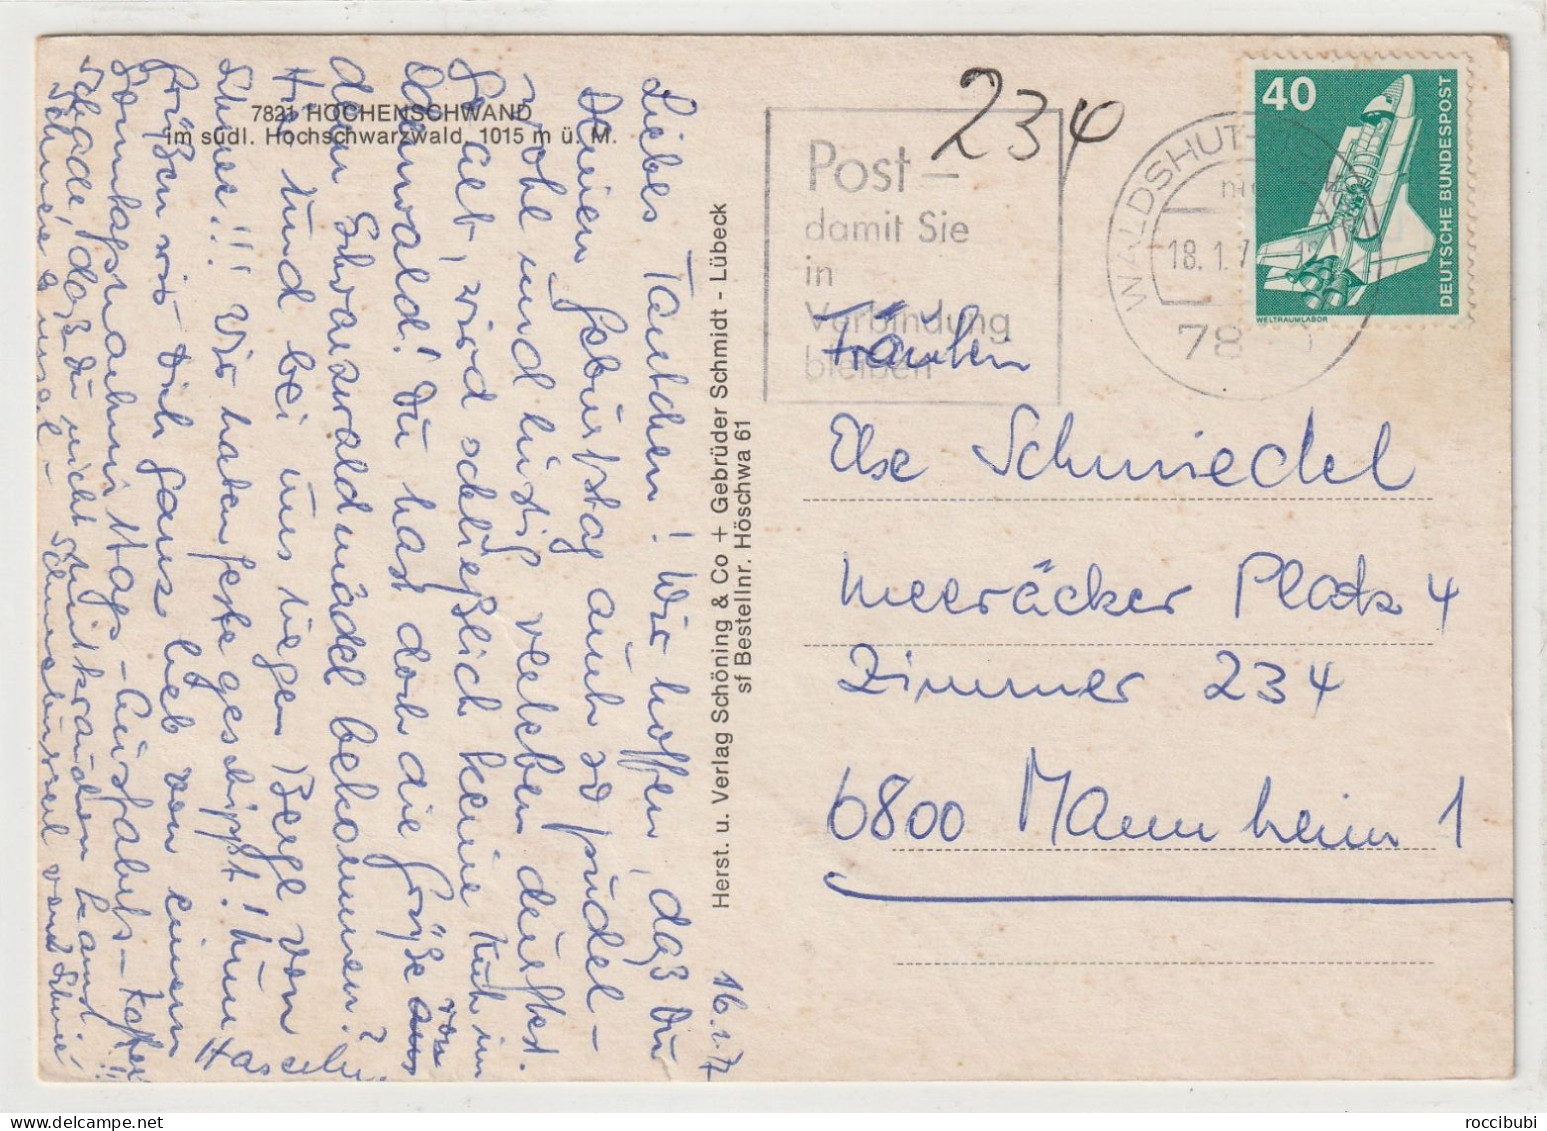 7821 HÖCHENSCHWAND
im südl. Hochschwarzwald, 1015 m ü. M.
16.1.77
Liebes Tantchen! Wir hoffen, daß Du
Deinen Geburtstag auch so pudel-
wohl und lustig verleben durftest.
Gelt, wird schließlich keine Kuh im
Odenwald! Du hast doch die Grüße von
den Schwarzwaldmädel bekommen?
und bei uns liegen Berge von
Schnee!! Wir haten feste geschippt! Nun
Grüßen wir Dich ganz lieb von einem
Sonntagsnachmittags-Ausfahrts-Kaffee!!
Schade, daß Du nicht mitkrauchen kannst.
Herst. u. Verlag Schöning & Co + Gebrüder Schmidt - Lübeck
sf Bestellnr. Höschwa 61
234
Post -
damit Sie
in
Verbindung
bleiben
WALDSHUT-
18.1.7
78
40
DEUTSCHE BUNDESPOST
WELTRAUMLABOR
Fräulein
Else Schmiedel
Meeräcker Platz 4
Zimmer 234
6800 Mannheim 1
roccibubi